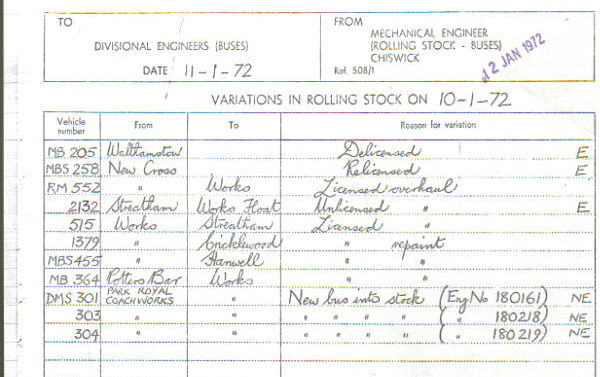 TO
FROM
DIVISIONAL ENGINEERS (BUSES)
MECHANICAL ENGINEER
(ROLLING STOCK - BUSES)
CHISWICK
DATE 11-1-72
Ref. 508/1
12 JAN 1972
VARIATIONS IN ROLLING STOCK ON 10-1-72
Vehicle number From To Reason for variation
MB 205 Walthamstow Delicensed E
MBS 258 New Cross Relicensed E
RM 552 " Works Licensed overhaul
2132 Streatham Works Float Unlicensed " E
515 Works Streatham Licensed "
1379 " Cricklewood " repaint
MBS 455 " Hanwell " "
MB 364 Potters Bar Works " "
DMS 301 PARK ROYAL COACHWORKS " New bus into stock (Eng No 180161) NE
303 " " " " " " ( " 180218) NE
304 " " " " " " ( " 180219) NE